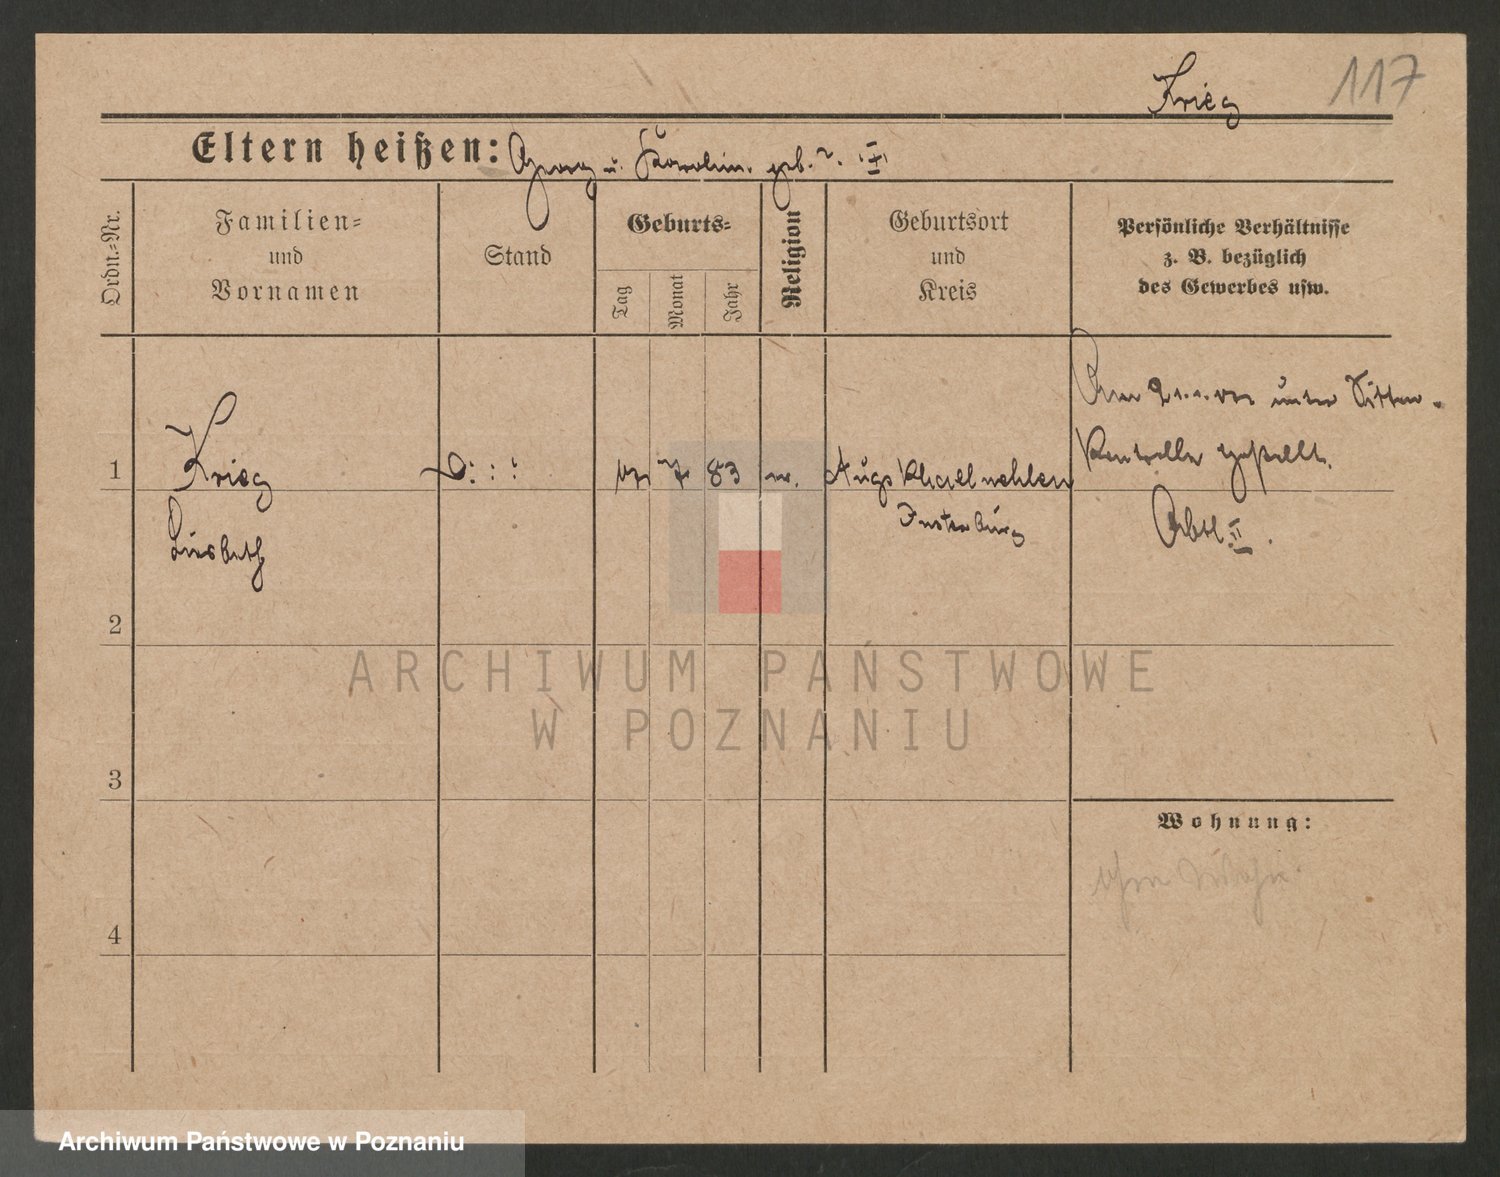 Krieg 117
Eltern heißen: Georg u. Karolin. geb. ?.
Ordn.-Nr.
Familien-
und
Vornamen
Stand
Geburts-
Tag
Monat
Jahr
Religion
Geburtsort
und
Kreis
Persönliche Verhältnisse
z. B. bezüglich
des Gewerbes usw.
Am unter Sitten-
1 Krieg 7 83
Kontrolle gestellt.
Insterburg
Abtl. II.
Lisbeth
2
3
Wohnung:
4
ARCHIWUM PAŃSTWOWE
W POZNANIU
Archiwum Państwowe w Poznaniu